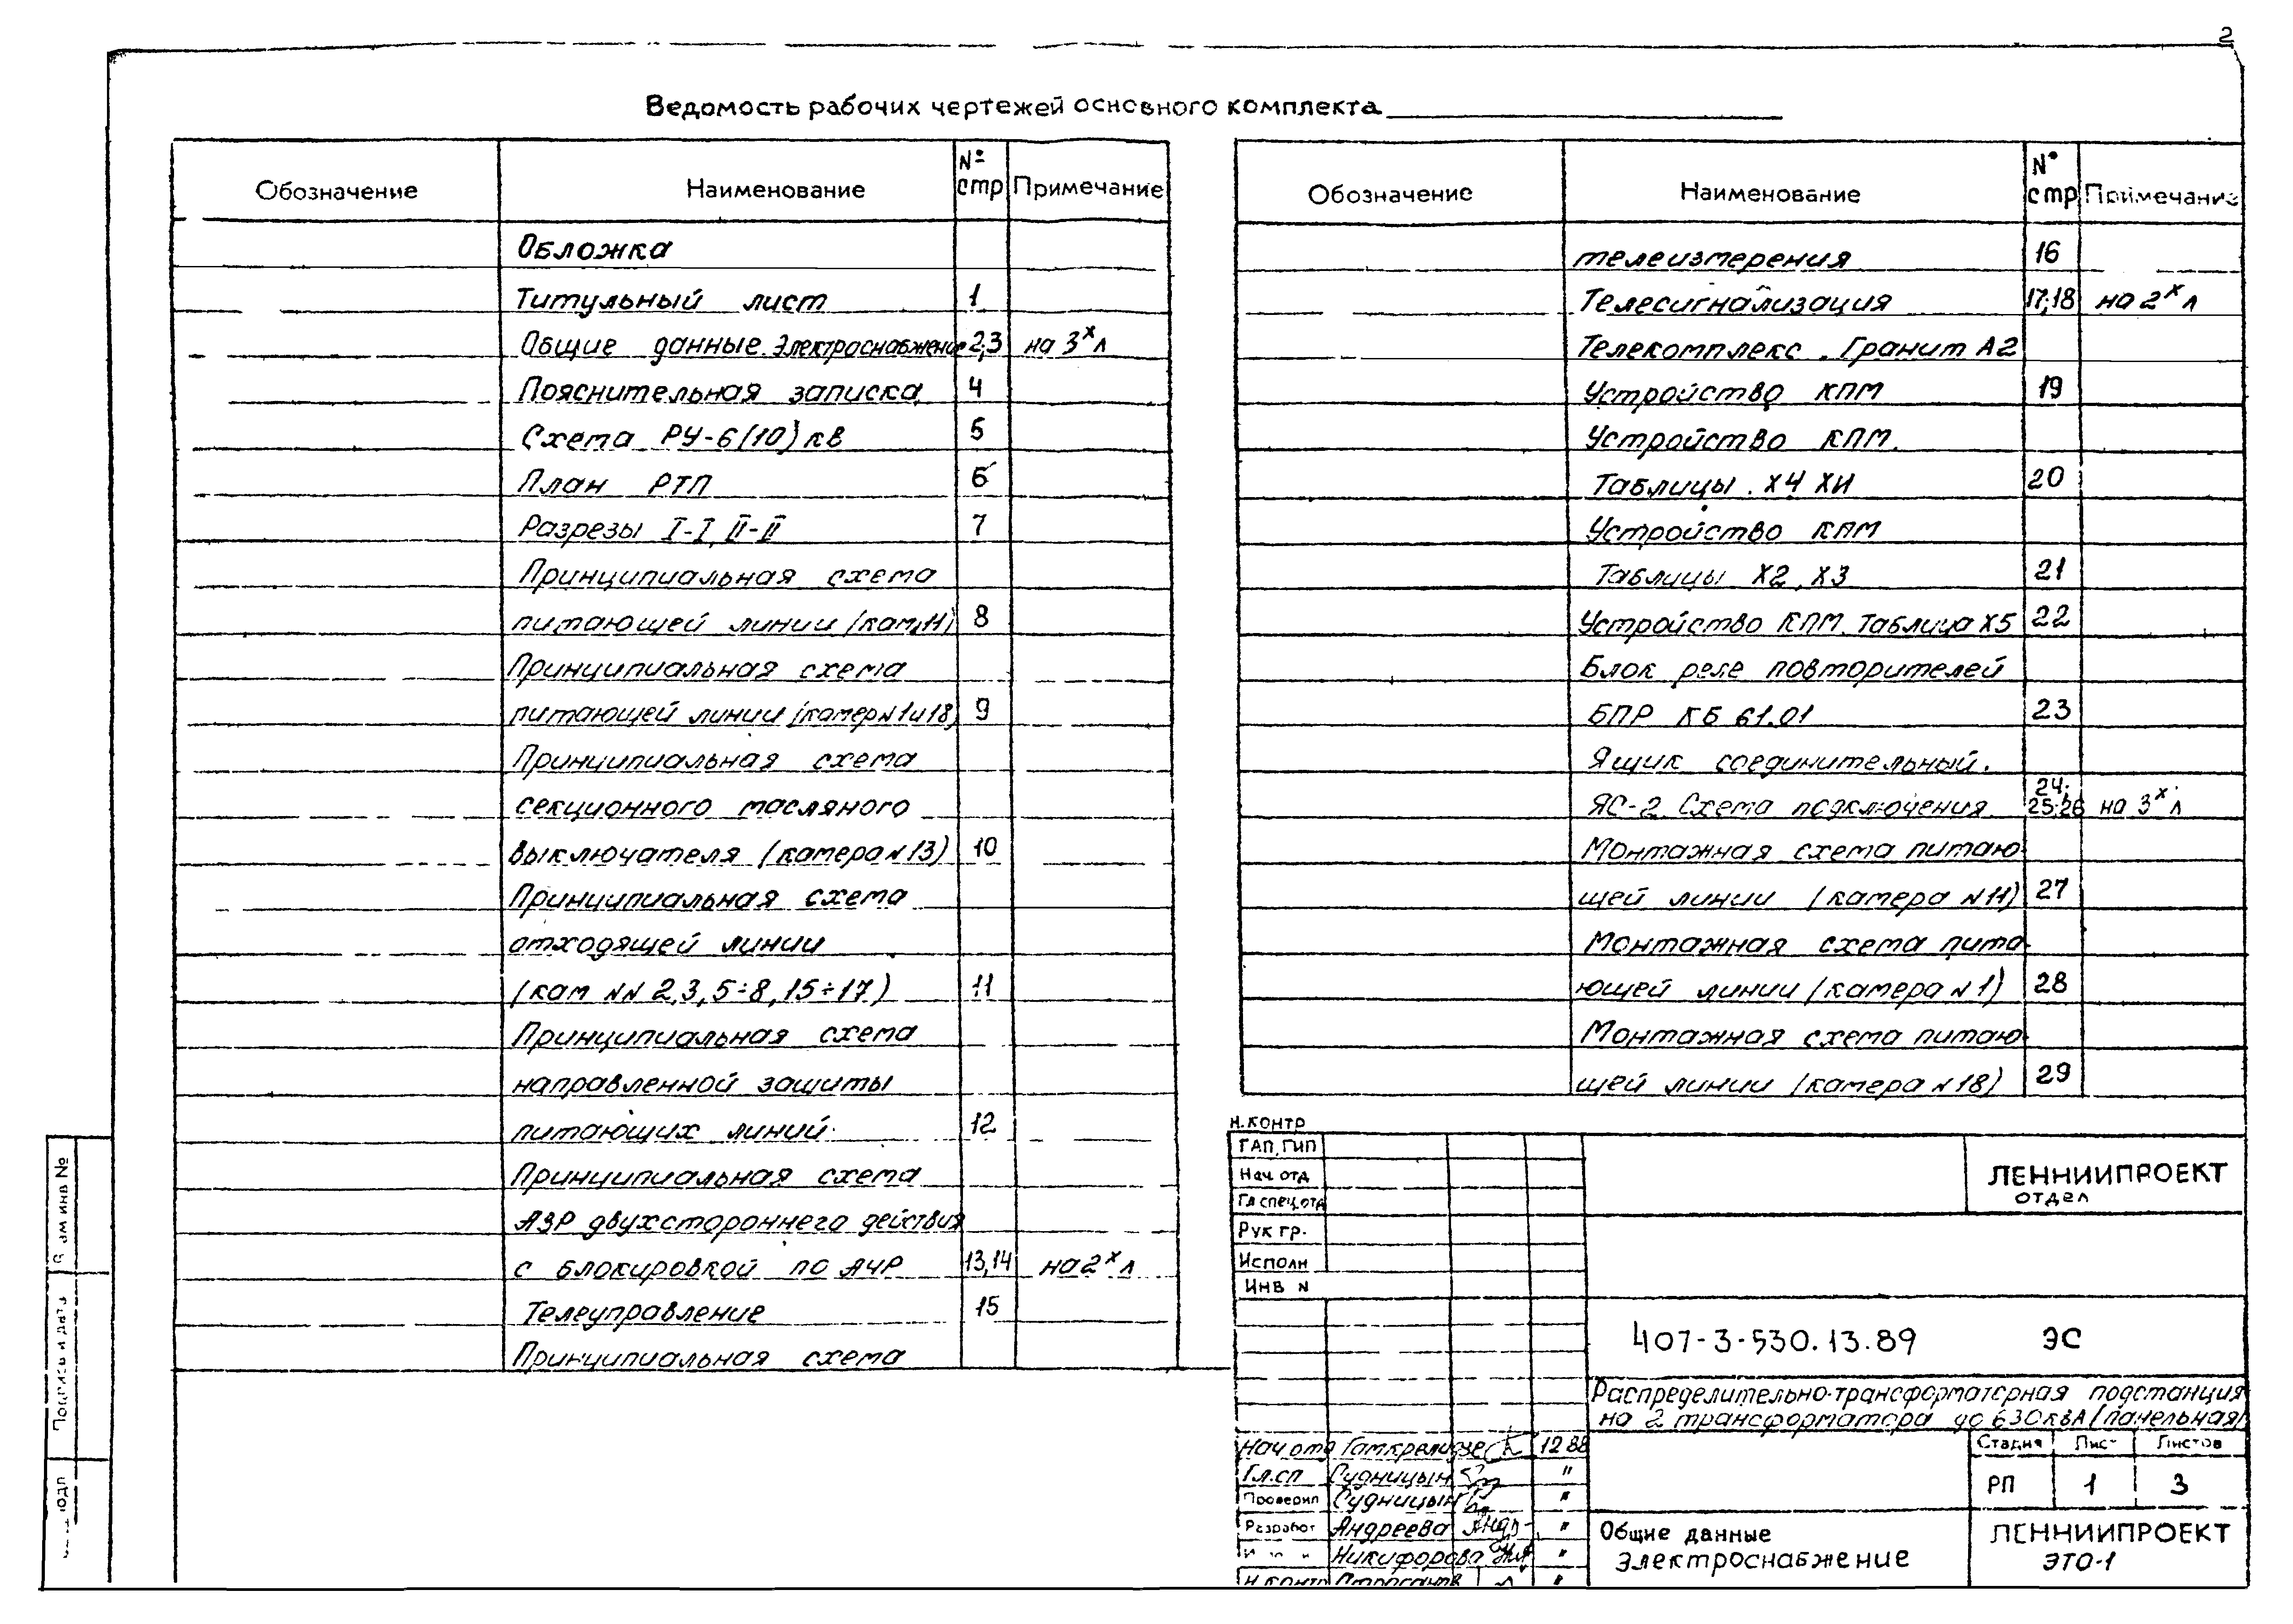 2
Ведомость рабочих чертежей основного комплекта
Обозначение Наименование № стр Примечание
Обложка
Титульный лист 1
Общие данные. Электроснабжение 2,3 на 3х л
Пояснительная записка 4
Схема РУ-6(10)кв 5
План РТП 6
Разрезы I-I, II-II 7
Принципиальная схема
питающей линии (кам.11) 8
Принципиальная схема
питающей линии (камер N1и18) 9
Принципиальная схема
секционного масляного
выключателя (камера N13) 10
Принципиальная схема
отходящей линии
(кам NN 2,3,5÷8,15÷17) 11
Принципиальная схема
направленной защиты
питающих линий 12
Принципиальная схема
АВР двухстороннего действия
с блокировкой по АЧР 13,14 на 2х л
Телеуправление 15
Принципиальная схема
Обозначение Наименование № стр Примечание
телеизмерения 16
Телесигнализация 17;18 на 2х л
Телекомплекс. Гранит А2
Устройство КПМ 19
Устройство КПМ.
Таблицы. Х4 ХИ 20
Устройство КПМ
Таблицы Х2, Х3 21
Устройство КПМ. Таблица Х5 22
Блок реле повторителей
БПР КБ 61.01 23
Ящик соединительный.
ЯС-2. Схема подключения 24; 25;26 на 3х л
Монтажная схема питаю-
щей линии (камера N11) 27
Монтажная схема пита-
ющей линии (камера N1) 28
Монтажная схема питаю-
щей линии (камера N18) 29
Н.КОНТР
ГАП, ГИП
Нач. отд
Гл спец.отд
Рук гр.
Исполн
Инв N
ЛЕННИИПРОЕКТ
ОТДЕЛ
407-3-530.13.89 ЭС
Распределительно-трансформаторная подстанция
на 2 трансформатора до 630кВА (панельная)
Нач отд Гамкрелидзе 12 88
Гл.сп Судницын "
Проверил Судницын "
Разработ Андреева Андр- "
Никифорова "
Н контр "
Стадия Лист Листов
РП 1 3
Общие данные
Электроснабжение
ЛЕННИИПРОЕКТ
ЭТО-1
ам инв №
Подпись и дата
подл